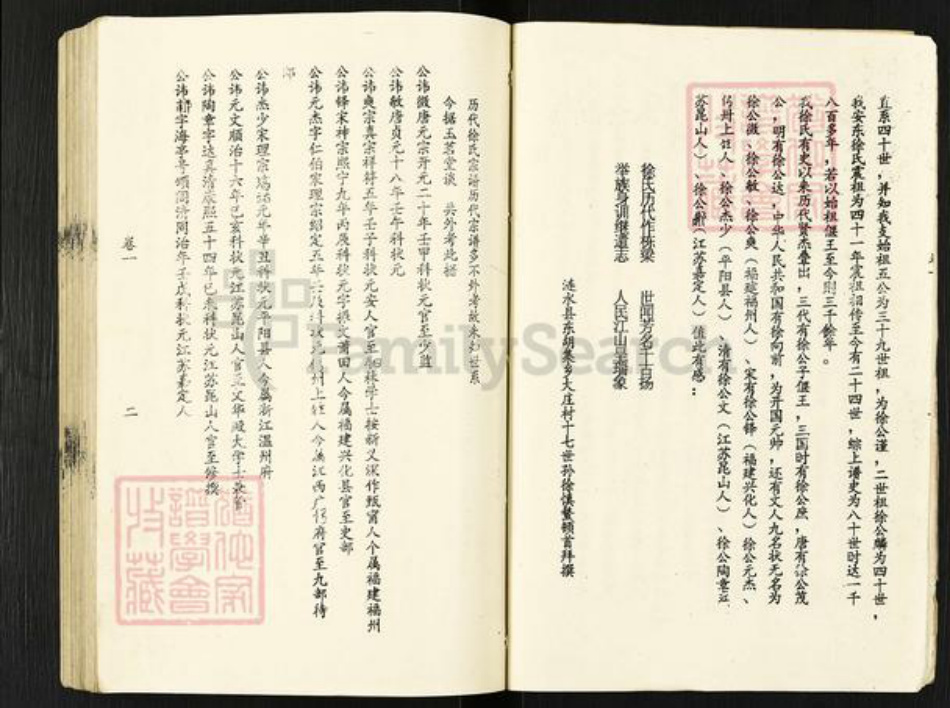 直系四十世，并知我支始祖五公为三十九世祖，为徐公谨，二世祖徐公麟为四十世，
我安东徐氏震祖为四十一年震祖相传至今有二十四世，综上谱史为八十世时达一千
八百多年，若以始祖偃王至今则三千馀年。
我徐氏有史以来历代贤杰叠出，三代有徐公子偃王，三国时有徐公庶，唐有徐公茂
公，明有徐公达，中华人民共和国有徐向前，为开国元帅，还有文人九名状无名为
徐公微、徐公敏、徐公奭（福建福州人）、宋有徐公铎（福建兴化人）徐公元杰、
上饶人、徐公杰少（平阳县人）、清有徐公文（江苏昆山人）、徐公陶章江
苏昆山人）、徐公（江苏嘉定人）值此有感：
徐氏历代作栋梁 世闻芳名千古扬
举族身训继遗志 人民江山呈瑞象
涟水县东胡集乡大庄村十七世孙徐慎鳌顿首拜撰
历代徐氏宗谱历代宗谱多不外考故未列世系
今据玉茗堂谈 共外考此据
公讳微唐元宗开元二十年壬申科状元官至少监
公讳敏唐贞元十八年壬午科状元
公讳奭宗真宗祥符五年壬子科状元安人官至翰林学士按新又纵作甄甯人个属福建福州
公讳铎宋神宗熙宁九年丙辰科状元字振文莆田人今属福建兴化县官至吏部
公讳元杰字仁伯宋理宗绍定五年壬辰科状元州上饶人今属江西广信府官至九部待
郎
公讳杰少宋理宗元年辛丑科状元平阳县人今属浙江温州府
公讳元文顺治十六年己亥科状元江苏昆山人官至文华殿大学士
公讳陶章字达真清康熙五十四年己未科状元江苏昆山人官至修撰
公讳字海清同治年壬戌科状元江苏嘉定人
卷一
二